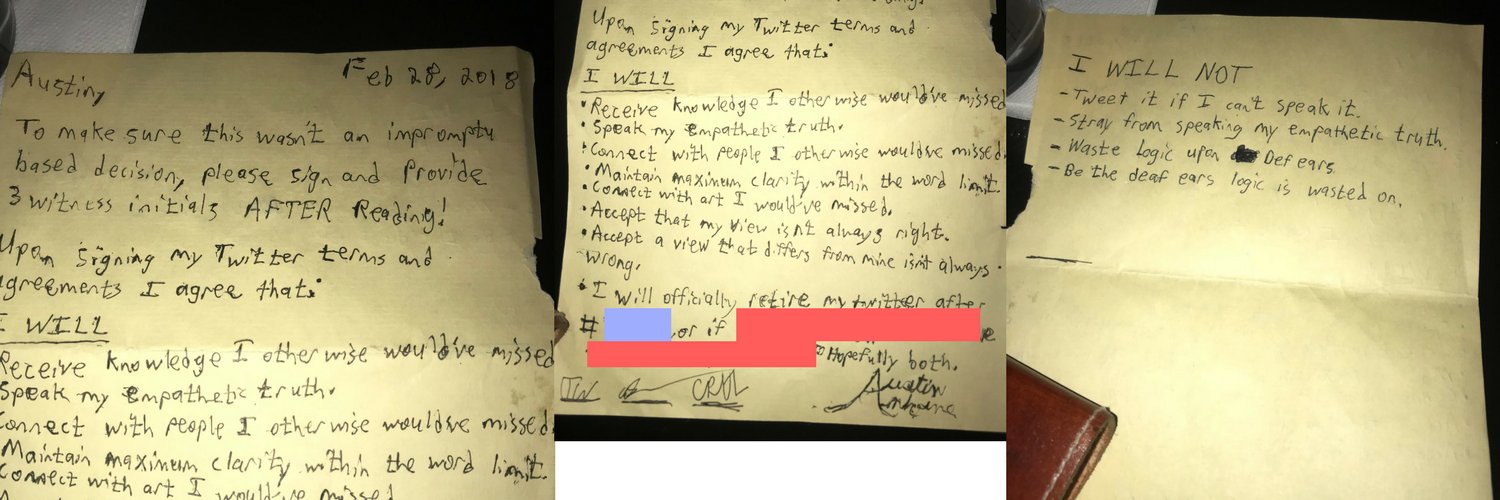 Austin,
Feb 28, 2018
To make sure this wasn't an impromptu
based decision, please sign and Provide
3 witness initials AFTER Reading!
Upon Signing my Twitter terms and
agreements I agree that:
I WILL
Receive knowledge I otherwise would've missed
Speak my empathetic truth.
Connect with People I otherwise would've missed.
Maintain maximum clarity within the word limit.
Connect with art I would've missed.
Upon Signing my Twitter terms and
agreements I agree that:
I WILL
• Receive knowledge I otherwise would've missed
• Speak my empathetic truth.
• Connect with people I otherwise would've missed.
• Maintain maximum clarity within the word limit.
• Connect with art I would've missed.
• Accept that my View isn't always right.
• Accept a view that differs from mine isn't always
wrong.
• I will officially retire my twitter after
# or if
Hopefully both.
Austin
I WILL NOT
- Tweet it if I can't speak it.
- Stray from speaking my empathetic truth.
- Waste Logic upon Def ears.
- Be the deaf ears logic is wasted on.